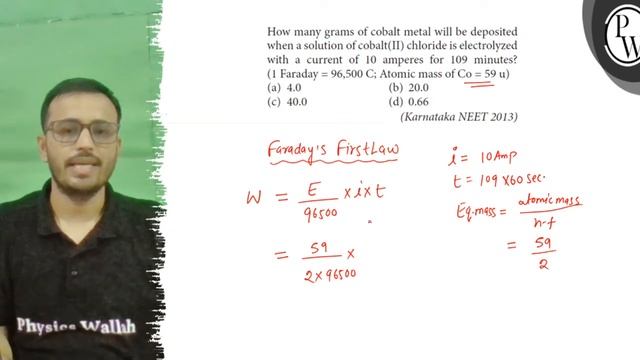 How many grams of cobalt metal will be deposited
when a solution of cobalt(II) chloride is electrolyzed
with a current of 10 amperes for 109 minutes?
(1 Faraday = 96,500 C; Atomic mass of Co = 59 u)
(a) 4.0 (b) 20.0
(c) 40.0 (d) 0.66
(Karnataka NEET 2013)
P
W
Faraday's First Law
W = E/96500 × i × t
= 59/2×96500 ×
i = 10 Amp
t = 109 × 60 sec.
Eq.mass = atomic mass/n-f
= 59/2
Physics Wallah